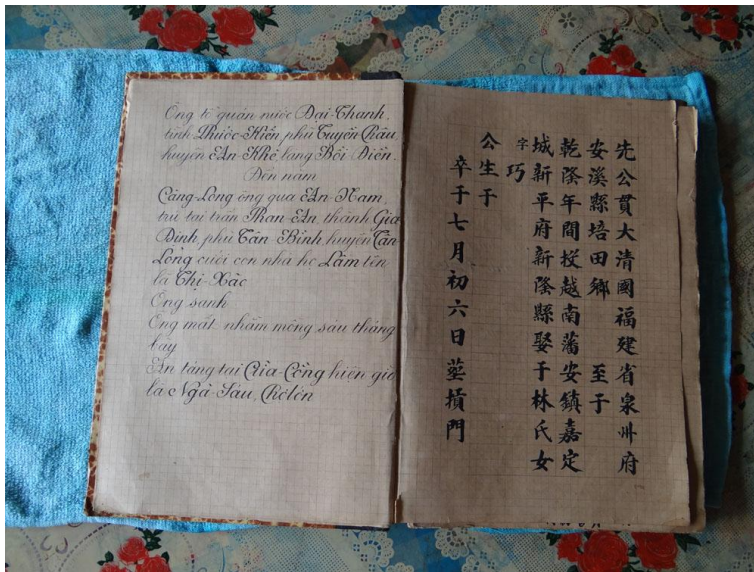 Ông tổ quán nước Đại-Thanh,
tỉnh Phước-Kiến phủ Tuyền Châu,
huyện An-Khê, làng Bồi Điền.
Đến năm
Càng-Long ông qua An-Nam,
trú tại trấn Phan-An, thành Gia
Định, phủ Tân-Bình, huyện Tân-
Long cưới con nhà họ Lâm tên
là Thị-Xảo
Ông sanh
Ông mất nhằm mồng sáu tháng
bảy
An táng tại Cửa-Cống hiện giờ
là Ngã-Sáu, Chợlớn
先公貫大清國福建省泉州府
安溪縣培田鄉 至于
乾隆年間投越南藩安鎮嘉定
城新平府新隆縣娶于林氏女
字巧
公生于
卒于七月初六日塟摃門